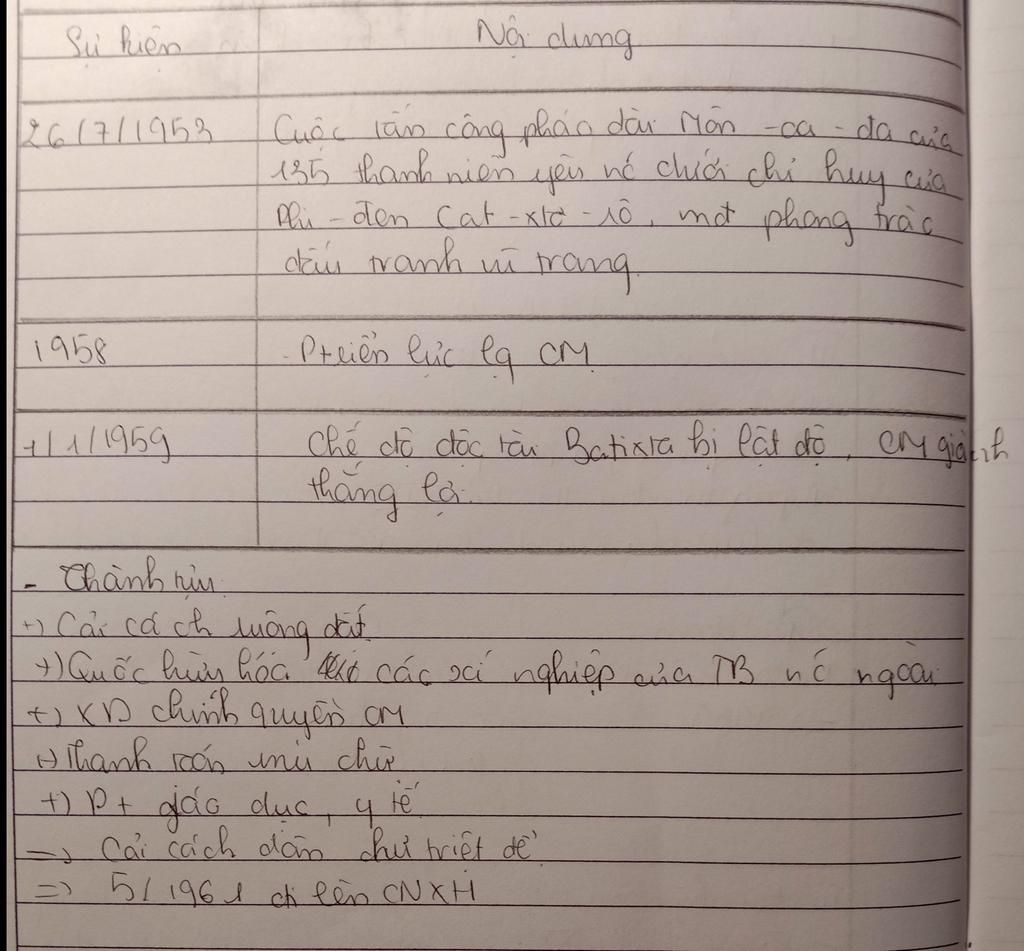 Sự kiện Nội dung
26/7/1953 Cuộc tấn công pháo đài Môn-ca-đa của
135 thanh niên yêu nc dưới chỉ huy của
Phi-đen Cat-xtơ-rô, mở phong trào
đấu tranh vũ trang
1958 - Ptriển lực lg CM
1/1/1959 Chế độ độc tài Batixta bị lật đổ, CM giành
thắng lợi.
- Thành tựu
+) Cải cách ruộng đất
+) Quốc hữu hóa các xí nghiệp của TB nc ngoài
+) XD chính quyền CM
+) Thanh toán mù chữ
+) Pt giáo dục, y tế
=> Cải cách dân chủ triệt để
=> 5/1961 đi lên CNXH